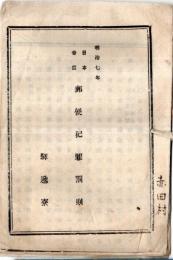 明治七年
日本
帝國
郵便記罪罰則
驛逓寮
赤田村